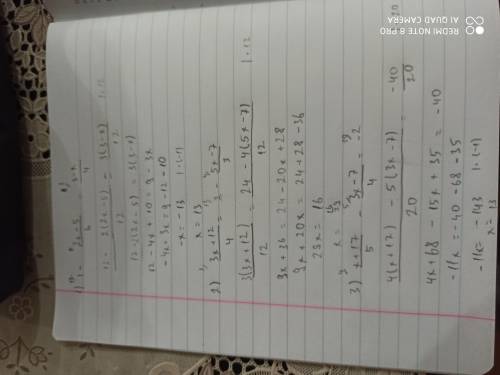 1) 1 - (2x-5)/6 = (3-x)/4
(12 - 2(2x-5))/12 = (3(3-x))/12 | · 12
12 - 2(2x-5) = 3(3-x)
12 - 4x + 10 = 9 - 3x
-4x + 3x = 9 - 12 - 10
-x = -13 | · (-1)
x = 13
2) (3x+12)/4 = 2 - (5x-7)/3
(3(3x+12))/12 = (24 - 4(5x-7))/12 | · 12
9x + 36 = 24 - 20x + 28
9x + 20x = 24 + 28 - 36
29x = 16
3) (x+17)/5 - (3x-7)/4 = -2
(4(x+17) - 5(3x-7))/20 = -40/20
4x + 68 - 15x + 35 = -40
-11x = -40 - 68 - 35
-11x = -143 | · (-1)
x = 13
REDMI NOTE 8 PRO
AI QUAD CAMERA